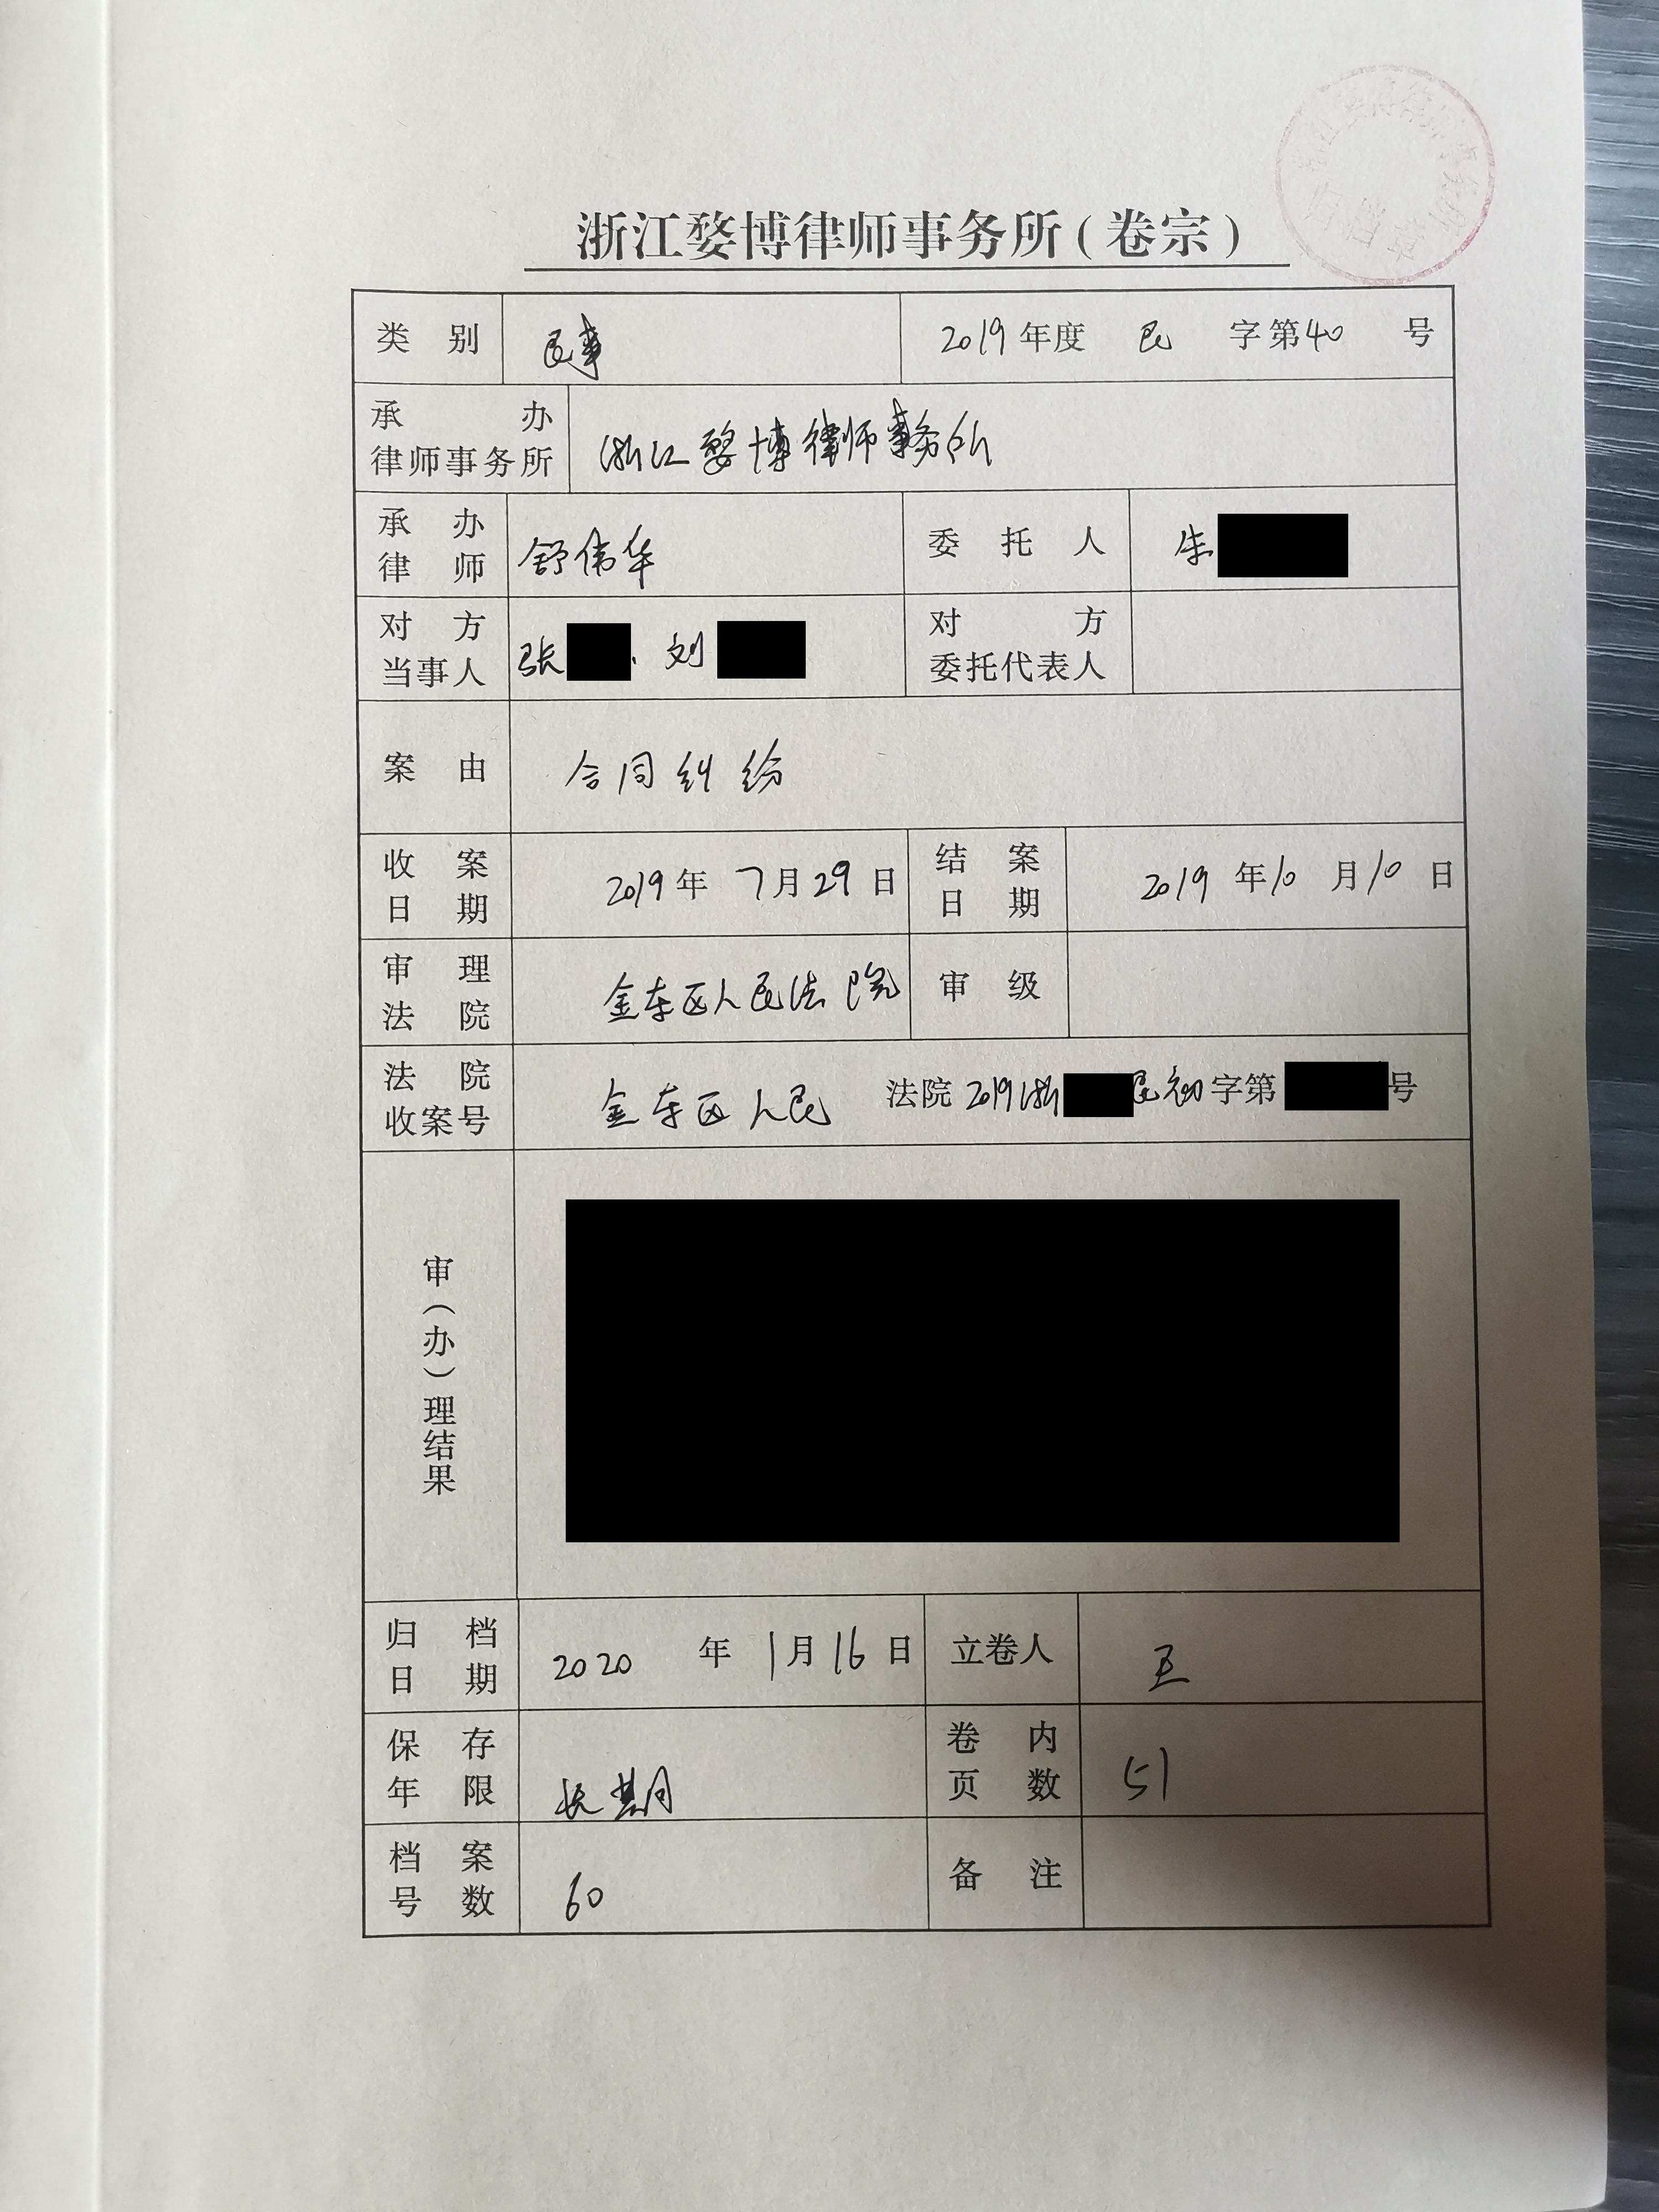 浙江婺博律师事务所(卷宗)
类别 民事 2019年度 民 字第40 号
承办
律师事务所 浙江婺博律师事务所
承办
律师 舒伟华 委托人 朱
对方
当事人 张 、刘 对方
委托代表人
案由 合同纠纷
收案
日期 2019年 7月29日 结案
日期 2019年10月10日
审理
法院 金东区人民法院 审级
法院
收案号 金东区人民 法院2019浙 民初字第 号
审(办)理结果
归档
日期 2020 年 1月16日 立卷人 王
保存
年限 长期 卷内
页数 51
档案
号数 60 备注